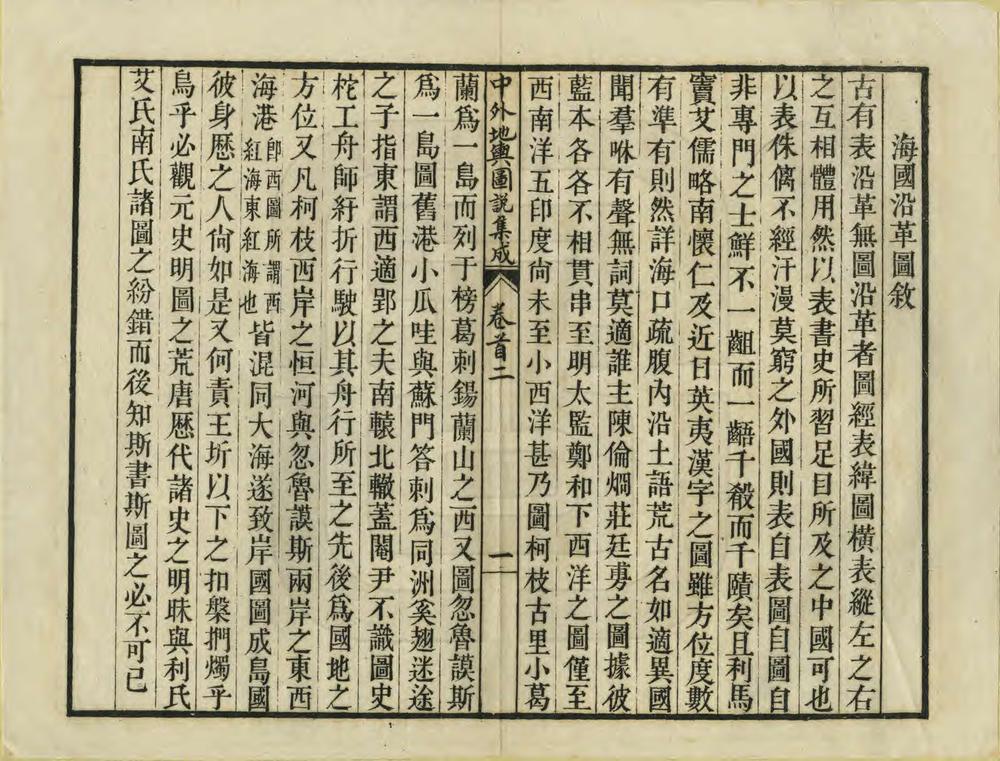 海國沿革圖敘
古有表沿革無圖沿革者圖經表緯圖橫表縱左之右
之互相體用然以表書史所習足目所及之中國可也
以表侏㒧不經汗漫莫窮之外國則表自表圖自圖自
非專門之士鮮不一齟而一齬千殽而千賾矣且利馬
竇艾儒略南懷仁及近日英夷漢字之圖雖方位度數
有準有則然詳海口疏腹內沿土語荒古名如適異國
聞羣咻有聲無詞莫適誰主陳倫烱莊廷旉之圖據彼
藍本各各不相貫串至明太監鄭和下西洋之圖僅至
西南洋五印度尙未至小西洋甚乃圖柯枝古里小葛
中外地輿圖說集成 卷首二 一
蘭爲一島而列于榜葛剌錫蘭山之西又圖忽魯謨斯
爲一島圖舊港小瓜哇與蘇門答剌爲同洲奚翅迷途
之子指東謂西適郢之夫南轅北轍蓋閹尹不識圖史
柁工舟師紆折行駛以其舟行所至之先後爲國地之
方位又凡柯枝西岸之恒河與忽魯謨斯兩岸之東西
海港卽西圖所謂西紅海東紅海也皆混同大海遂致岸國圖成島國
彼身歷之人尙如是又何責王圻以下之扣槃捫燭乎
烏乎必觀元史明圖之荒唐歷代諸史之明昧與利氏
艾氏南氏諸圖之紛錯而後知斯書斯圖之必不可已